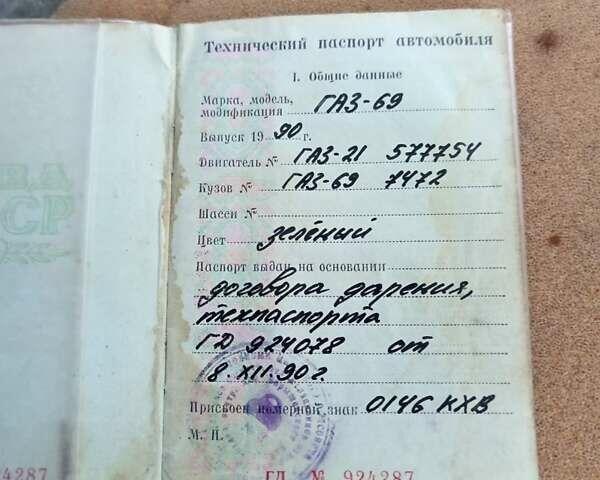 Технический паспорт автомобиля
I. Общие данные
Марка, модель,
модификация ГАЗ-69
Выпуск 19 90 г.
Двигатель № ГАЗ-21 577754
Кузов № ГАЗ-69 7472
Шасси №
Цвет зелёный
Паспорт выдан на основании
договора дарения,
техпаспорта
ГД 924078 от
8.XII.90 г.
Присвоен номерной знак 0146 КХВ
М. П.
ГД № 924287
24287
ВА
СР